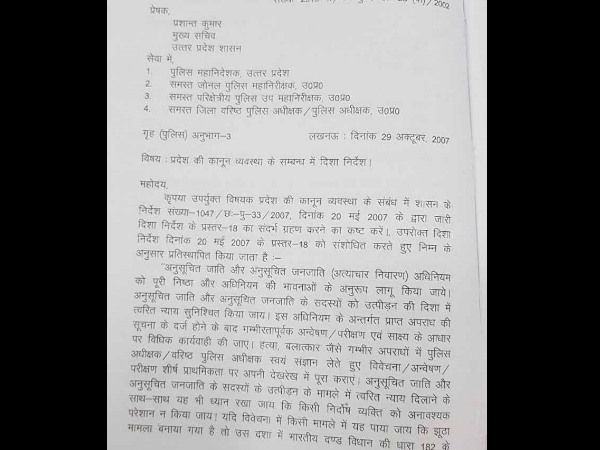 /2002
प्रेषक,
प्रशान्त कुमार
मुख्य सचिव
उत्तर प्रदेश शासन
सेवा में,
1. पुलिस महानिदेशक, उत्तर प्रदेश
2. समस्त जोनल पुलिस महानिरीक्षक, उ0प्र0
3. समस्त परिक्षेत्रीय पुलिस उप महानिरीक्षक, उ0प्र0
4. समस्त जिला वरिष्ठ पुलिस अधीक्षक/पुलिस अधीक्षक, उ0प्र0
गृह (पुलिस) अनुभाग-3 लखनऊ : दिनांक 29 अक्टूबर, 2007
विषय : प्रदेश की कानून व्यवस्था के सम्बन्ध में दिशा निर्देश।
महोदय,
कृपया उपर्युक्त विषयक प्रदेश की कानून व्यवस्था के संबंध में शासन के
निर्देश संख्या-1047/छः-पु-33/2007, दिनांक 20 मई 2007 के द्वारा जारी
दिशा निर्देश के प्रस्तर-18 का संदर्भ ग्रहण करने का कष्ट करें।. उपरोक्त दिशा
निर्देश दिनांक 20 मई 2007 के प्रस्तर-18 को संशोधित करते हुए निम्न के
अनुसार प्रतिस्थापित किया जाता है :-
"अनुसूचित जाति और अनुसूचित जनजाति (अत्याचार निवारण) अधिनियम
को पूरी निष्ठा और अधिनियम की भावनाओं के अनुरूप लागू किया जाये।
अनुसूचित जाति और अनुसूचित जनजाति के सदस्यों को उत्पीड़न की दिशा में
त्वरित न्याय सुनिश्चित किया जाय। इस अधिनियम के अन्तर्गत प्राप्त अपराध की
सूचना के दर्ज होने के बाद गम्भीरतापूर्वक अन्वेषण/परीक्षण एवं साक्ष्य के आधार
पर विधिक कार्यवाही की जाए। हत्या, बलात्कार जैसे गम्भीर अपराधों में पुलिस
अधीक्षक/वरिष्ठ पुलिस अधीक्षक स्वयं संज्ञान लेते हुए विवेचना/अन्वेषण/
परीक्षण शीर्ष प्राथमिकता पर अपनी देखरेख में पूरा कराएं। अनुसूचित जाति और
अनुसूचित जनजाति के सदस्यों के उत्पीड़न के मामले में त्वरित न्याय दिलाने के
साथ-साथ यह भी ध्यान रखा जाय कि किसी निर्दोष व्यक्ति को अनावश्यक
परेशान न किया जाय। यदि विवेचना में किसी मामले में यह पाया जाय कि झूठा
मामला बनाया गया है तो उस दशा में भारतीय दण्ड विधान की धारा 182 के